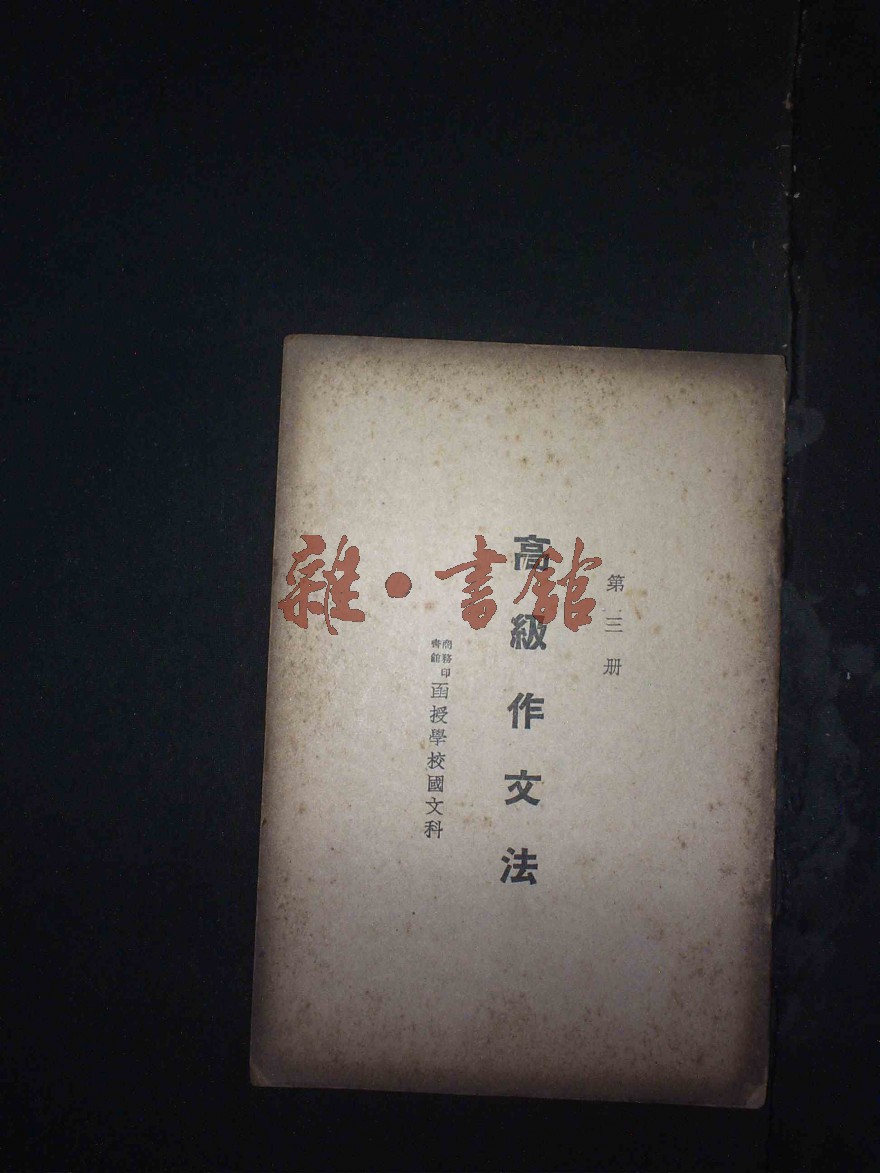 第三册
高級作文法
商務印書館函授學校國文科
雜·書館